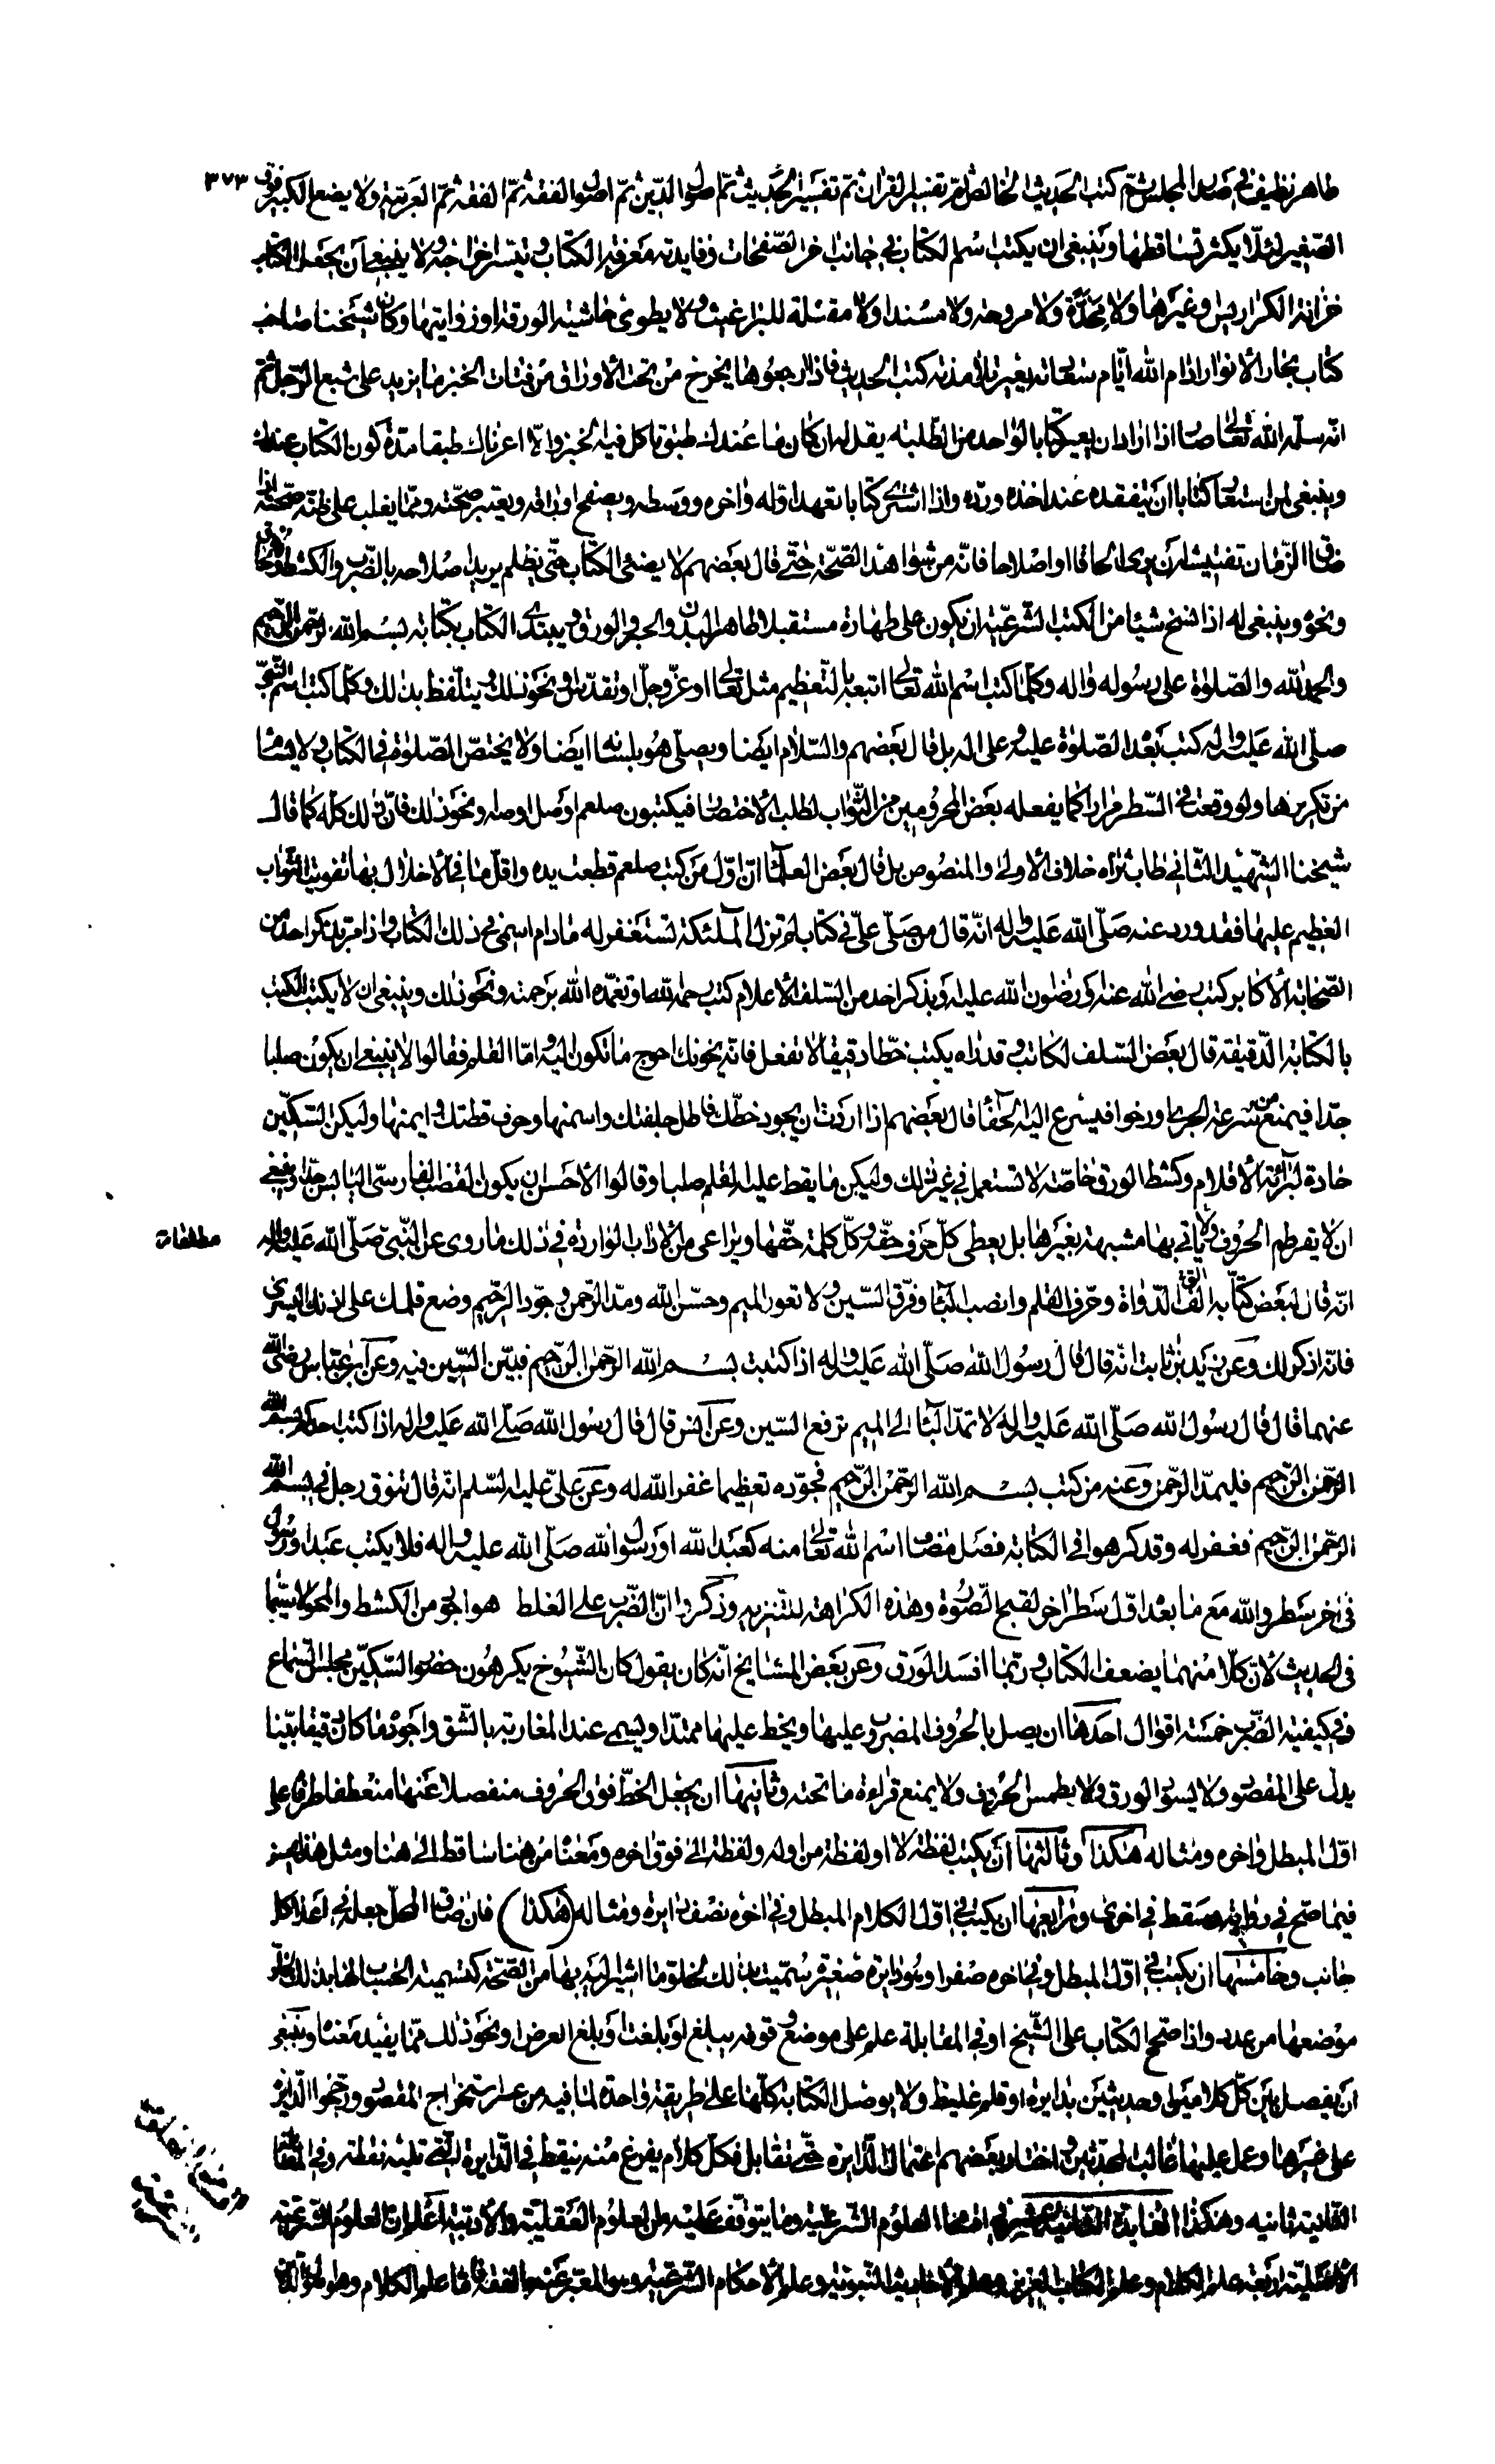 ٣٧٣
طاهر نظيف في صدر المجلس ثم كتب الحديث الخالص ثم تفسير القران ثم تفسير الحديث ثم اصول الدّين ثم اصول الفقه ثمّ الفقه ثمّ العربية ولا يضع الكبير فوق
الصّغير لئلّا يكثر تساقطها وينبغي ان يكتب اسم الكتاب في جانب اخر الصّفحات وفايدته معرفة الكتاب وتيسّر اخراجه ولا ينبغي أن يجعل الكتاب
خزانة الكراريس وغيرها ولا مخدّة ولا مروحة ولا مسندا ولا مقتلة للبراغيث ولا يطوى حاشية الورقة او زوايتها وكان شيخنا صاحب
كتاب بحار الأنوار ادام الله ايّام سعاداته يعير تلامذته كتب الحديث فاذا ارجعوها يخرج من تحت الأوراق من فتات الخبز ما يزيد على شبع الرّجل ثم
انّه سلّمه الله تعالى صار اذا اراد ان يعير كتابا لواحد من الطّلبة يقل له ان كان ما عندك طبق تاكل فيه الخبز والّا اعرناك طبقا مدّة كون الكتاب عندك
وينبغي لمن استعار كتابا ان يتفقده عند اخذه وردّه واذا اشترى كتابا تعهد اوّله واخره ووسطه ويصفح اوراقه ويعتبر صحّته وممّا يغلب على ظنّه صحّته اذا
ضاق الزّمان تفتيشه ان يرى الحاقا او اصلاحا فانّه من شواهد الصّحّة حتّى قال بعضهم لا يضئ الكتاب حتّى يظلم يريد اصلاحه بالضّرب والكشط والالحاق
ونحوه وينبغي له اذا نسخ شيئا من الكتب الشّرعيّة ان يكون على طهارة مستقبلا طاهر البدن والحبر والورق ويبتدى الكتاب بكتابة بسم الله الرّحمن الرّحيم
والحمد لله والصّلوة على رسوله واله وكلّما كتب اسم الله تعالى اتبعه بالتّعظيم مثل تعالى او عزّ وجلّ او تقدّس ونحو ذلك ويتلفّظ بذلك وكلّما كتب اسم النّبيّ
صلّى الله عليه واله كتب بعد الصّلوة عليه وعلى اله بل قال بعضهم والسّلام ايضا ويصلّي هو بلسانه ايضا ولا يختصر الصّلوة في الكتاب ولا يسأم
من تكريرها ولو وقعت في السّطر مرارا كما يفعله بعض المحرومين من الثّواب لطلب الأختصار فيكتبون صلعم او صل او صه ونحو ذلك فانّ ذلك كلّه كما قال
شيخنا الشّهيد الثّاني طاب ثراه خلاف الأولى والمنصوص بل قال بعض العلمآء انّ اوّل من كتب صلعم قطعت يده واقلّ ما في الأخلال بها تفويت الثّواب
العظيم عليها فقد ورد عنه صلّى الله عليه واله انّه قال من صلّى عليّ في كتاب لم تزل الملئكة تستغفر له مادام اسمى في ذلك الكتاب واذا مرّ بذكر احد من
الصّحابة الأكابر كتب رضي الله عنه ورضوان الله عليه وبذكر احد من السّلف الأعلام كتب رحمه الله او تغمّده الله برحمته ونحو ذلك وينبغي ان لا يكتب الكتب
بالكتابة الدّقيقة قال بعض السّلف لكاتب وقد راه يكتب خطّا دقيقا لا تفعل فانّه يخونك احوج ما تكون اليه وامّا القلم فقالوا لا ينبغي ان يكون صلبا
جدّا فيمنع من سرعة الجري او رخوا فيسرع اليه الحفأ قال بعضهم اذا اردت ان يجود خطّك فاطل جلفتك واسمنها وحرف قطتك وايمنها وليكن السّكّين
حادة لبراية الأقلام وكشط الورق خاصّة لا تستعمل في غير ذلك وليكن ما يقط عليه القلم صلبا وقالوا الأحسن ان يكون القصب الفارسىّ اليابس جدّا وينبغي
ان لا يقرمط الحروف ولا ياتي بها مشبهة بغيرها بل يعطى كلّ حرف حقّه وكلّ كلمة حقّها ويراعى من الأداب الواردة في ذلك ما روى عن النّبيّ صلّى الله عليه واله
انّه قال لبعض كتّابه الق الدّواة وحرّف القلم وانصب البآء وفرّق السّين ولا تعور الميم وحسّن الله ومدّ الرّحمن وجوّد الرّحيم وضع قلمك على اذنك اليسرى
فانّه اذكر لك وعن زيد بن ثابت انّه قال قال رسول الله صلّى الله عليه واله اذا كتبت بسم الله الرّحمن الرّحيم فبيّن السّين فيه وعن ابن عبّاس رضى الله
عنهما قال قال رسول الله صلّى الله عليه واله لا تمدّ البآء الى الميم ترفع السّين وعن انس قال قال رسول الله صلّى الله عليه واله اذا كتب احدكم بسم الله
الرّحمن الرّحيم فليمدّ الرّحمن وعنه من كتب بسم الله الرّحمن الرّحيم فجوّده تعظيما غفر الله له وعن عليّ عليه السّلم انّه قال تنوّق رجل في بسم الله
الرّحمن الرّحيم فغفر له وقد كرهوا في الكتابة فصل مضاف اسم الله تعالى منه كعبد الله او رسول الله صلّى الله عليه واله فلا يكتب عبد او رسول
في اخر سطر والله مع ما بعد اوّل سطر اخر لقبح الصّورة وهذه الكراهة للتنزيه وذكروا انّ الضّرب على الغلط هو اجود من الكشط والمحو لا سيّما
في الحديث لانّ كلّا منهما يضعف الكتاب وربّما افسد الورق وعن بعض المشايخ انّه كان يقول كان الشّيوخ يكرهون حضور السّكّين مجلس السّماع
وفي كيفية الضّرب خمسة اقوال احدها ان يصل بالحروف المضروب عليها ويخط عليها ممتدّا ويسمى عند المغاربة بالشّق واجوده ما كان دقيقا بيّنا
يدلّ على المقصود ولا يسوّد الورق ولا يطمس الحروف ولا يمنع قراءة ما تحته وثانيها ان يجعل الخطّ فوق الحروف منفصلا عنها منعطفا طرفاه على
اوّل المبطل واخره ومثاله هكذا وثالثها أن يكتب لفظة لا او لفظة من اوله ولفظة الى فوق اخره ومعناه من هنا ساقط الى هنا ومثل هذا يحسن
فيما صحّ في رواية وسقط في اخرى ورابعها ان يكتب في اوّل الكلام المبطل وفي اخره نصف دايرة ومثاله (هكذا) فان ضاق المحلّ جعله في اعلا كل
جانب وخامسها ان يكتب في اوّل المبطل وفي اخره صفرا وهو دايرة صغيرة سمّيت بذلك لخلوّ ما اشير اليه بها من الصّحّة كتسمية الحساب لها بذلك لخلو
موضعها من عدد واذا صحح الكتاب على الشّيخ او في المقابلة علم على موضع وقوفه ببلغ او بلغت او بلغ العرض او نحو ذلك ممّا يفيد معناه وينبغي
أن يفصل بين كلّ كلامين وحديثين بدايرة او قلم غليظ ولا يوصل الكتابة كلّها على طريقة واحدة لما فيه من عسر استخراج المقصود ورجّحوا الدّايرة
على غيرها وعمل عليها غالب المحدّثين واختار بعضهم اغفال الدّايرة حتّى تقابل فكلّ كلام يفرغ منه ينقط في الدّايرة الّتي تليه نقطة وفي المقابلة
الثّانية ثانيه وهكذا الفايدة الثّانية عشر في اقسام العلوم الشّرعيّة وما يتوقّف عليه من العلوم العقليّة والأدبيّة اعلم انّ العلوم الشّرعيّة
الأصليّة اربعة علم الكلام وعلم الكتاب العزيز وعلم الأحاديث النّبوية وعلم الأحكام الشّرعيّة وهو المعبّر عنه بالفقه فامّا علم الكلام وهو